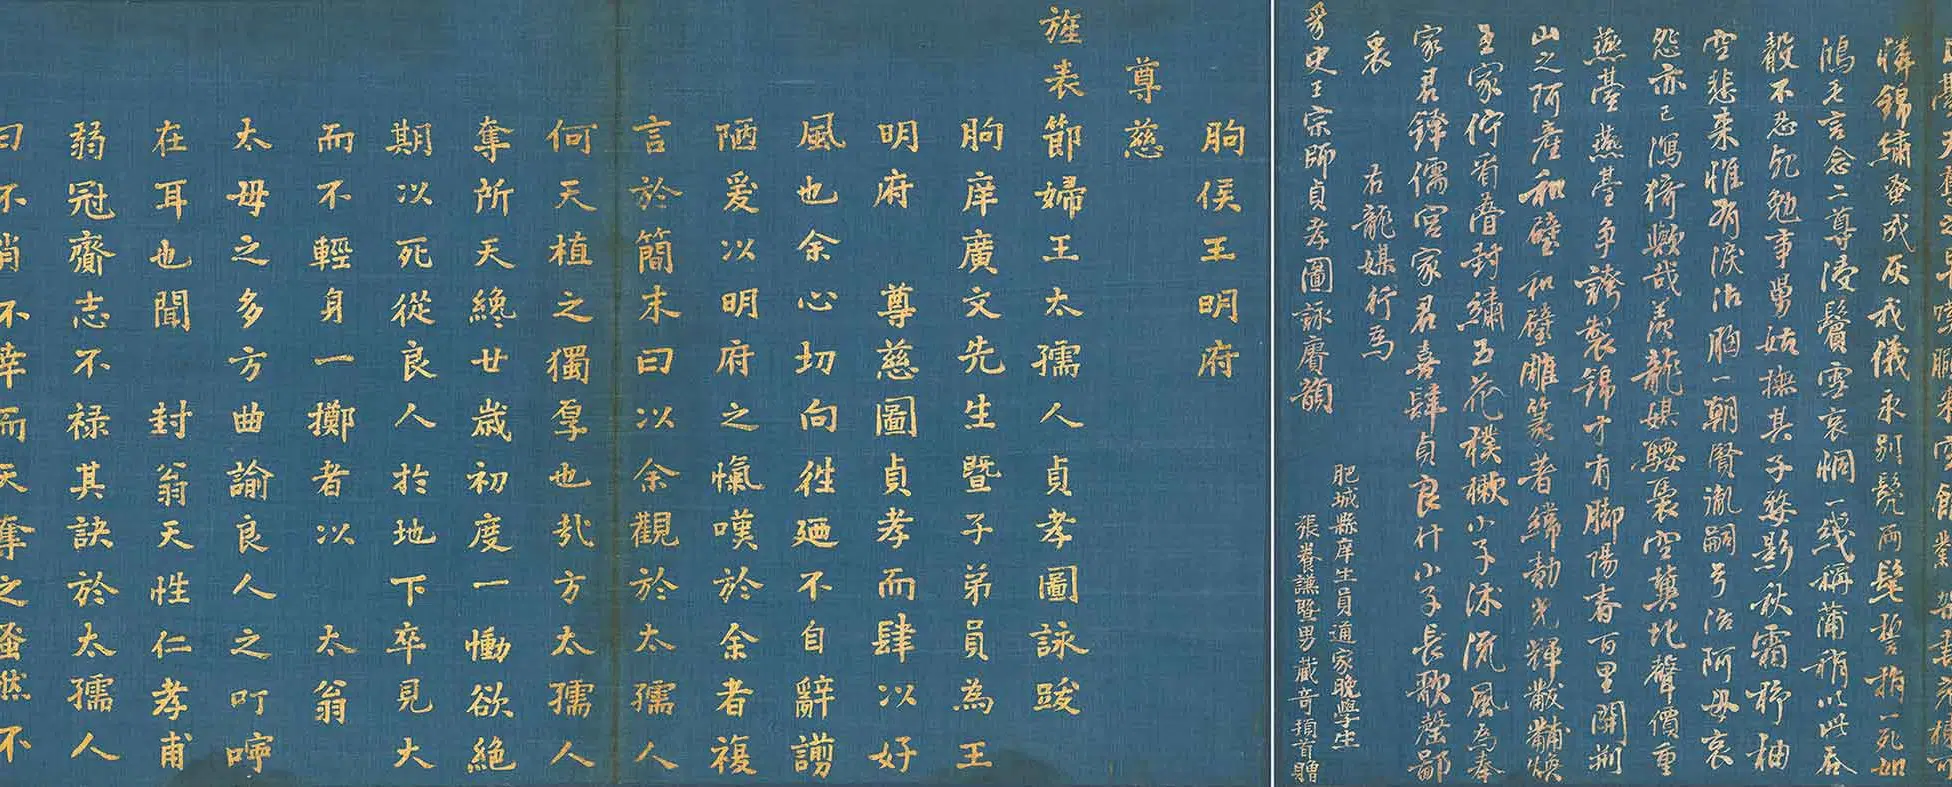 憐錦繡蚤成灰我儀永別鬒兩髦誓捐一死如
鴻毛言念二尊浸鬢雪哀惘一綫稱蒲稍以此吞
殽不忍死勉事舅姑撫其子婺影秋霜杼柚
空悲來惟有淚沾胸一朝賢胤嗣弓冶阿母哀
怨亦已瀉猗歟哉羨龍媒騕褭空冀北聲價重
燕臺燕臺爭誇製錦才有脚陽春百里開荊
山之阿產和璧和璧雕篆者光輝黻黼煥
王家佇看疊封繡五花樸樕小子沐流風為奉
家君鐸儒宮家君喜肆貞良什小子長歌鄙
衷
右龍媒行為
史王宗師貞孝圖詠賡韻
肥城縣庠生員通家晚學生
張養謙暨男藏奇頓首贈
朐侯王明府
尊慈
旌表節婦王太孺人貞孝圖詠跋
朐庠廣文先生暨子弟員為王
明府 尊慈圖貞孝而肆以好
風也余心切向徃廼不自辭謭
陋爰以明府之愾嘆於余者複
言於簡末曰以余觀於太孺人
何天植之獨厚也㢤方太孺人
奪所天纔廿歲初度一慟欲絕
期以死從良人於地下卒見大
而不輕身一擲者以 太翁
太母之多方曲諭良人之叮嚀
在耳也聞 封翁天性仁孝甫
弱冠齎志不祿其訣於太孺人
曰不肖不幸而天奪之蚤然不